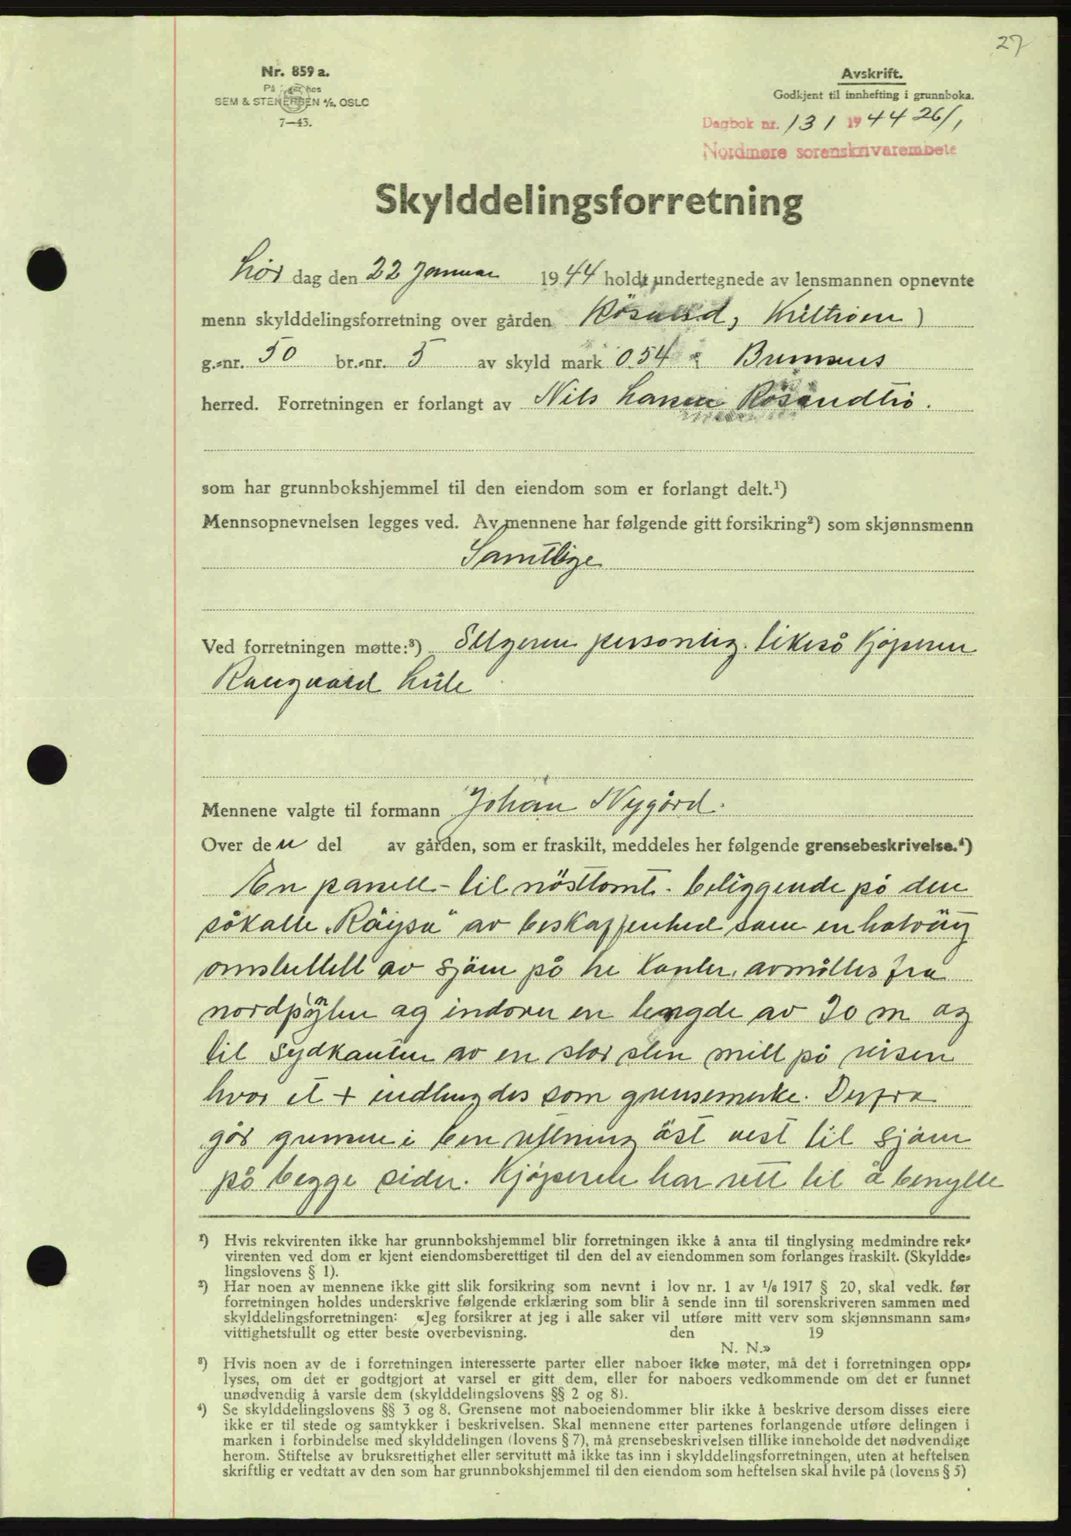 27
Nr. 859 a.
På lager hos
SEM & STENERSEN A/S, OSLO
7—43.
Avskrift.
Godkjent til innhefting i grunnboka.
Dagbok nr. 131 1944 26/1
Nordmøre sorenskrivarembete
Skylddelingsforretning
Lør dag den 22 Januar 1944 holdt undertegnede av lensmannen opnevnte
menn skylddelingsforretning over gården Rösand,
g.-nr. 50 br.-nr. 5 av skyld mark 0.54 i Bremsnes
herred. Forretningen er forlangt av Nils Larsen Rösandtrö.
som har grunnbokshjemmel til den eiendom som er forlangt delt.¹)
Mennsopnevnelsen legges ved. Av mennene har følgende gitt forsikring²) som skjønnsmenn
Samtlige
Ved forretningen møtte:³) Selgeren personlig. likeså Kjöperen
Rangvald
Mennene valgte til formann Johan Nygård.
Over den del av gården, som er fraskilt, meddeles her følgende grensebeskrivelse.⁴)
En parsell til nösttomt. beliggende på den
såkalte "Röysa" av beskaffenhed som en halvöy
omsluttett av sjöen på tre kanter, avmåltes fra
og indover en lengde av 20 m og
til sydkanten av en stor sten mitt på
hvor et + indhugdes som grensemerke. Derfra
går grensen i ben rettning öst vest til sjöen
på begge sider. Kjöperen har rett til å benytte
¹) Hvis rekvirenten ikke har grunnbokshjemmel blir forretningen ikke å anta til tinglysing medmindre rek-
virenten ved dom er kjent eiendomsberettiget til den del av eiendommen som forlanges fraskilt. (Skyldde-
lingslovens § 1).
²) Har noen av mennene ikke gitt slik forsikring som nevnt i lov nr. 1 av 1/6 1917 § 20, skal vedk. før
forretningen holdes underskrive følgende erklæring som blir å sende inn til sorenskriveren sammen med
skylddelingsforretningen: «Jeg forsikrer at jeg i alle saker vil utføre mitt verv som skjønnsmann sam-
vittighetsfullt og etter beste overbevisning. den 19
N. N.»
³) Hvis noen av de i forretningen interesserte parter eller naboer ikke møter, må det i forretningen opp-
lyses, om det er godtgjort at varsel er gitt dem, eller for naboers vedkommende om det er funnet
unødvendig å varsle dem (skylddelingslovens §§ 2 og 8).
⁴) Se skylddelingslovens §§ 3 og 8. Grensene mot naboeiendommer blir ikke å beskrive dersom disses eiere
ikke er til stede og samtykker i beskrivelsen. Skal mennene etter partenes forlangende utføre delingen i
marken i forbindelse med skylddelingen (lovens § 7), må grensebeskrivelsen tillike inneholde det nødvendige
herom. Stiftelse av bruksrettighet eller servitutt må ikke tas inn i skylddelingsforretningen, uten at heftelsen
skriftlig er vedtatt av den som har grunnbokshjemmel til den eiendom som heftelsen skal hvile på (lovens § 5)